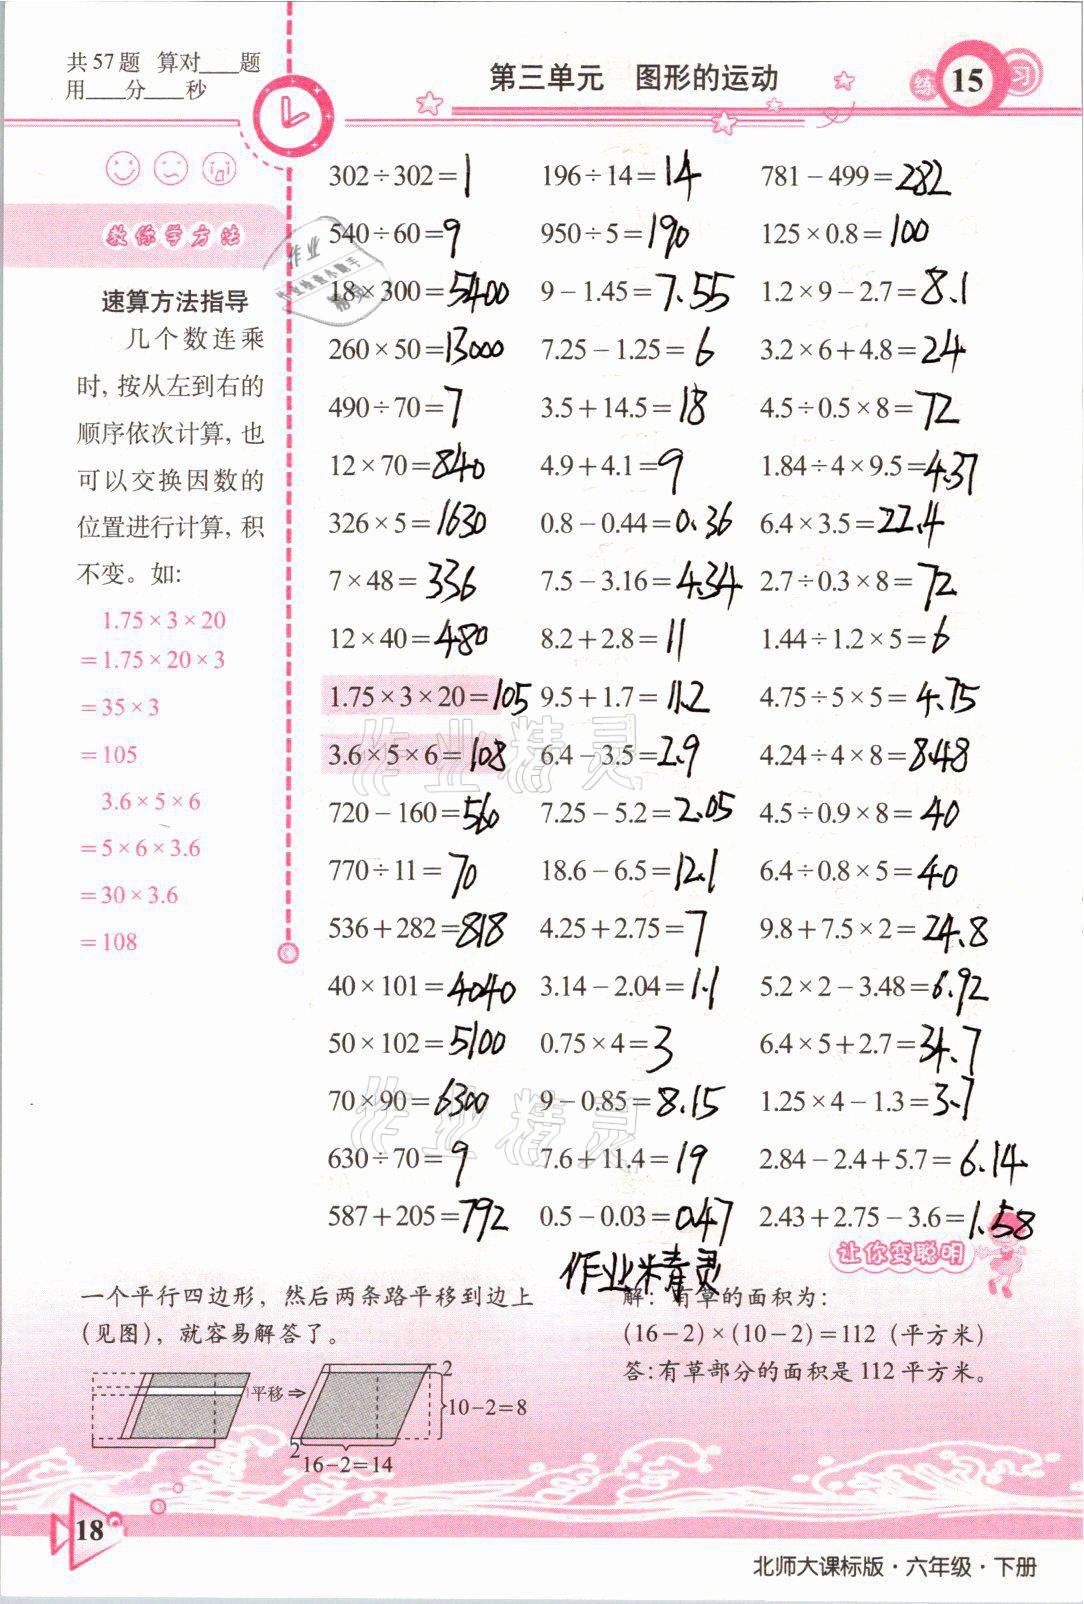 共57题 算对____题
用____分____秒
第三单元 图形的运动
练 15 习
教你学方法
速算方法指导
几个数连乘
时,按从左到右的
顺序依次计算,也
可以交换因数的
位置进行计算,积
不变。如:
1.75×3×20
=1.75×20×3
=35×3
=105
3.6×5×6
=5×6×3.6
=30×3.6
=108
302÷302=1 196÷14=14 781-499=282
540÷60=9 950÷5=190 125×0.8=100
18×300=5400 9-1.45=7.55 1.2×9-2.7=8.1
260×50=13000 7.25-1.25=6 3.2×6+4.8=24
490÷70=7 3.5+14.5=18 4.5÷0.5×8=72
12×70=840 4.9+4.1=9 1.84÷4×9.5=4.37
326×5=1630 0.8-0.44=0.36 6.4×3.5=22.4
7×48=336 7.5-3.16=4.34 2.7÷0.3×8=72
12×40=480 8.2+2.8=11 1.44÷1.2×5=6
1.75×3×20=105 9.5+1.7=11.2 4.75÷5×5=4.75
3.6×5×6=108 6.4-3.5=2.9 4.24÷4×8=8.48
720-160=560 7.25-5.2=2.05 4.5÷0.9×8=40
770÷11=70 18.6-6.5=12.1 6.4÷0.8×5=40
536+282=818 4.25+2.75=7 9.8+7.5×2=24.8
40×101=4040 3.14-2.04=1.1 5.2×2-3.48=6.92
50×102=5100 0.75×4=3 6.4×5+2.7=34.7
70×90=6300 9-0.85=8.15 1.25×4-1.3=3.7
630÷70=9 7.6+11.4=19 2.84-2.4+5.7=6.14
587+205=792 0.5-0.03=0.47 2.43+2.75-3.6=1.58
作业精灵
作业精灵
作业精灵
让你变聪明
一个平行四边形,然后两条路平移到边上
(见图),就容易解答了。
平移
2
10-2=8
2
16-2=14
解:有草的面积为:
(16-2)×(10-2)=112(平方米)
答:有草部分的面积是112平方米。
18
北师大课标版·六年级·下册